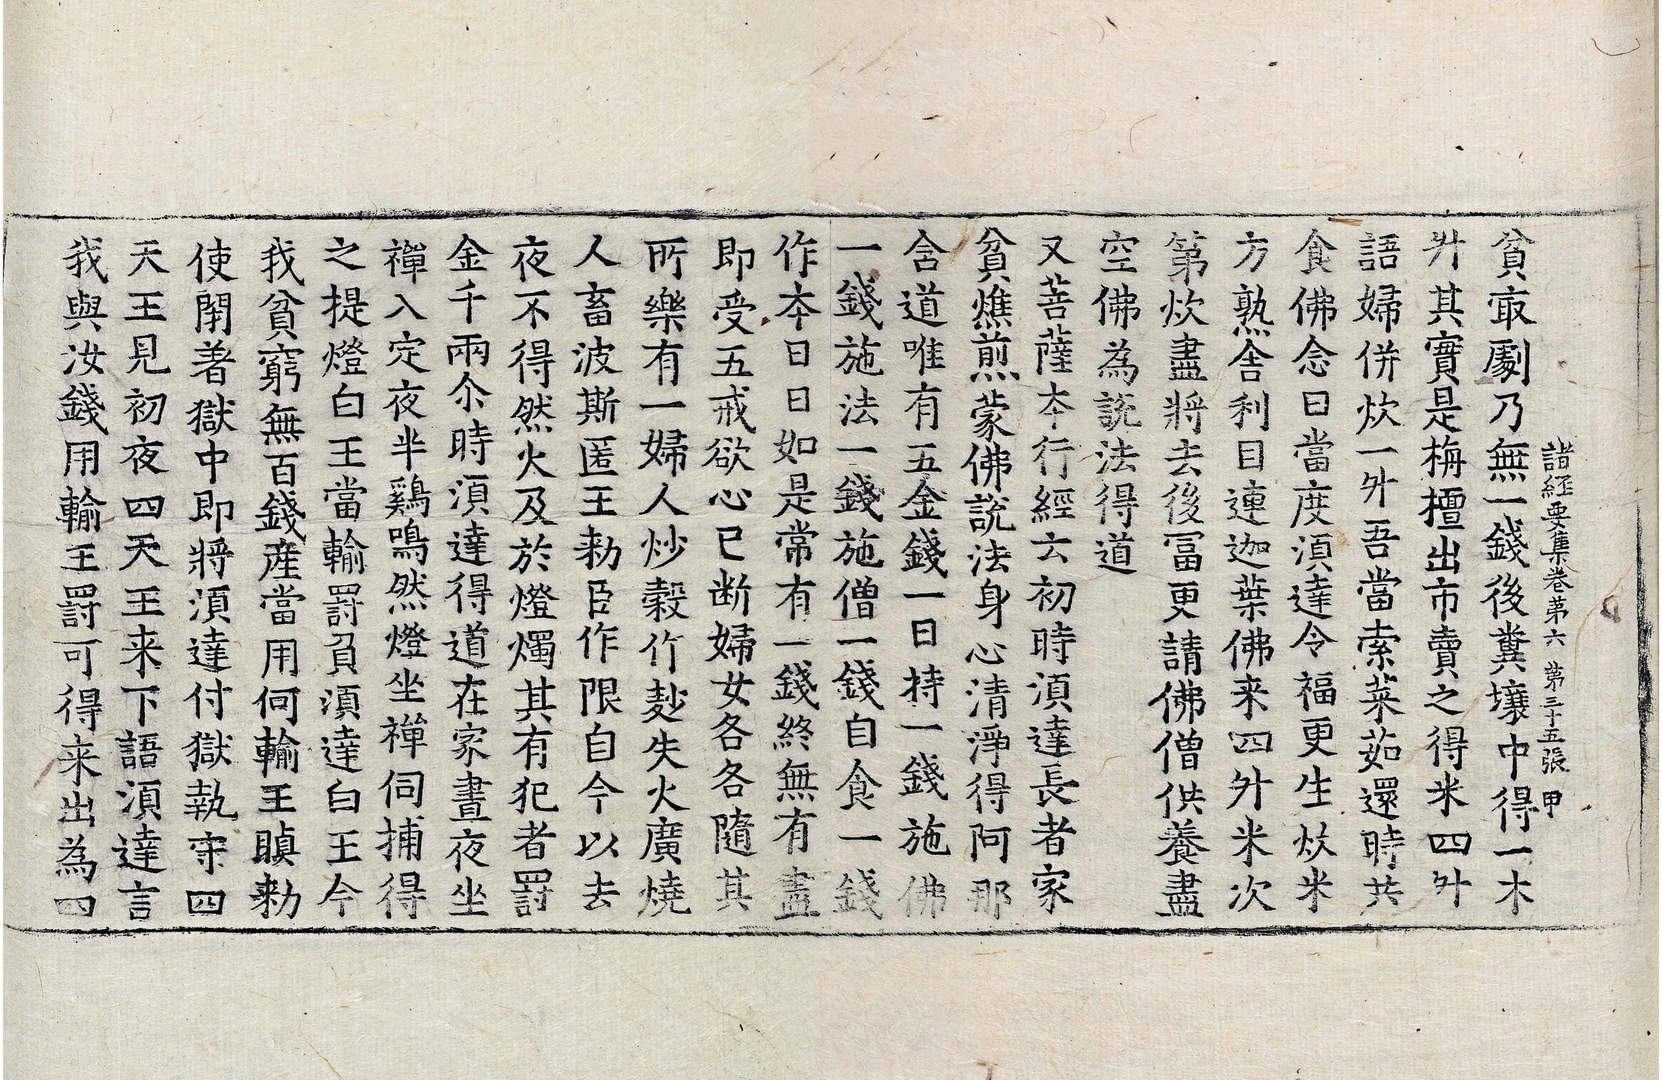 貧㝡劇乃無一錢後糞壤中得一木
升其實是栴檀出市賣之得米四升
語婦併炊一升吾當索菜茹還時共
食佛念曰當度湏達令福更生炊米
方熟舍利目連迦葉佛来四升米次
第炊盡將去後冨更請佛僧供養盡
空佛為說法得道
又菩薩夲行經云初時湏達長者家
貧燋煎蒙佛說法身心清淨得阿那
含道唯有五金錢一日持一錢施佛
一錢施法一錢施僧一錢自食一錢
作夲日日如是常有一錢終無有盡
即受五戒欲心已断婦女各各隨其
所樂有一婦人炒穀竹麨失火廣燒
人畜波斯匿王勑臣作限自今以去
夜不得然火及於燈燭其有犯者罰
金千兩尒時湏達得道在家晝夜坐
禪入定夜半鷄鳴然燈坐禪伺捕得
之提燈白王當輸罰負湏達白王今
我貧窮無百錢産當用何輸王瞋勑
使閉著獄中即將湏達付獄執守四
天王見初夜四天王来下語湏達言
我與汝錢用輸王罰可得来出為四
諸經要集卷第六 第三十五張 甲